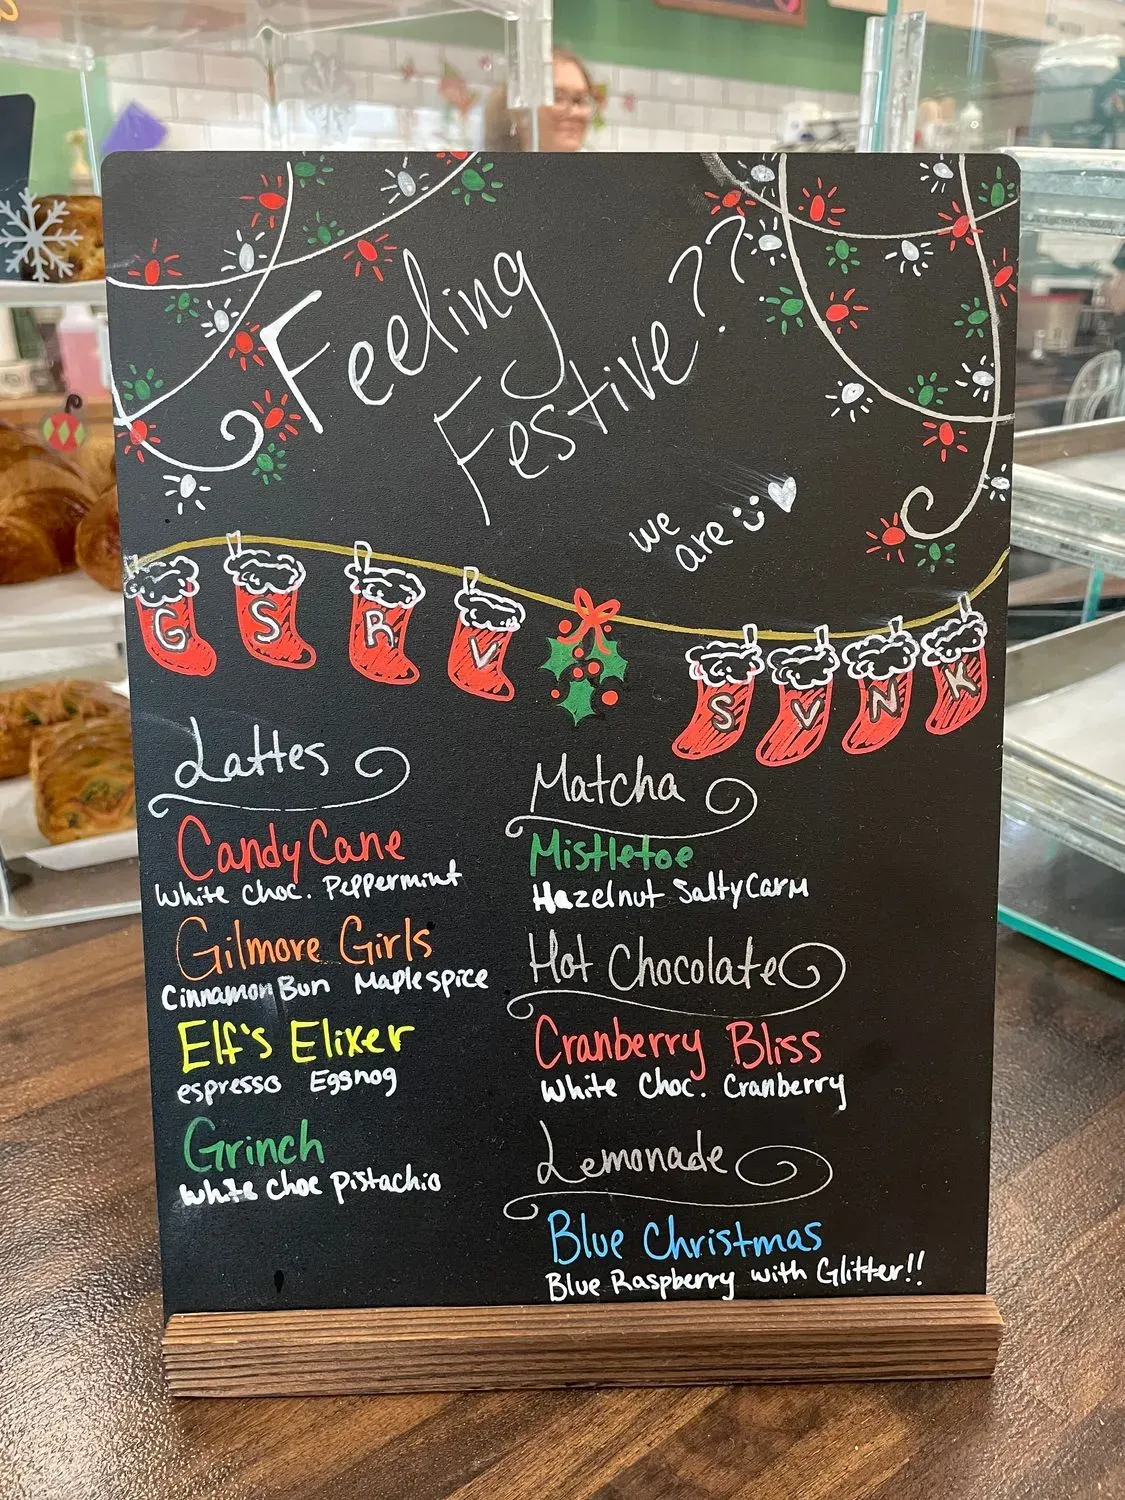 Feeling
Festive??
we
are
G S R V S V N K
Lattes
Candy Cane
White Choc. Peppermint
Gilmore Girls
Cinnamon Bun Maple spice
Elf's Elixer
espresso Eggnog
Grinch
White Choc Pistachio
Matcha
Mistletoe
Hazelnut Salty Carm
Hot Chocolate
Cranberry Bliss
White Choc. Cranberry
Lemonade
Blue Christmas
Blue Raspberry with Glitter!!